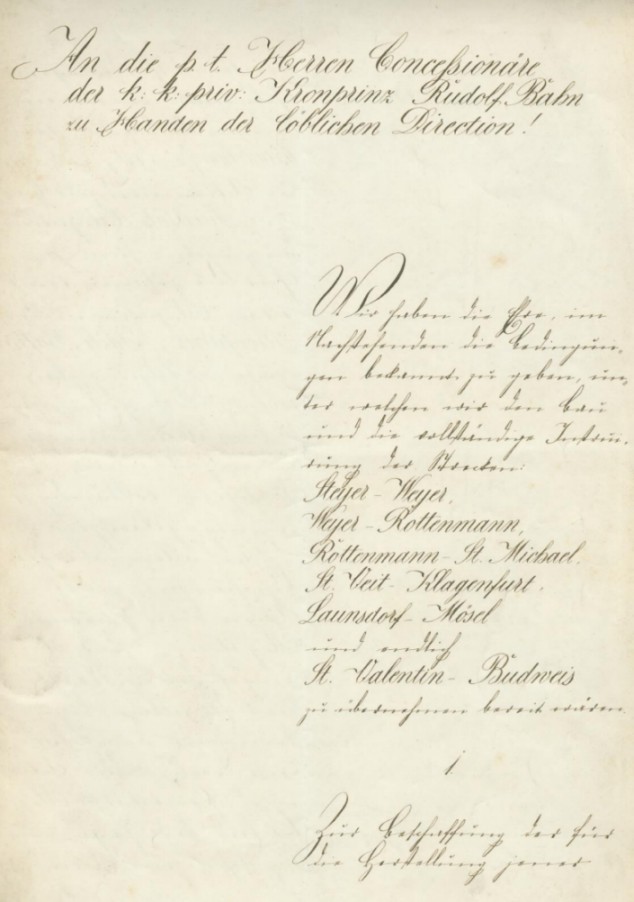 An die p. t. Herren Concessionäre
der k: k: priv: Kronprinz Rudolf Bahn
zu Handen der löblichen Direction!
Wir haben die Ehre, im
Nachstehenden die Bedingun-
gen bekannt zu geben, un-
ter welchen wir den Bau
und die vollständige Instrui-
rung der Strecken:
Steyer-Weyer,
Weyer-Rottenmann,
Rottenmann-St. Michael,
St. Veit-Klagenfurt,
Launsdorf-Mösel
und endlich
St. Valentin-Budweis
zu übernehmen bereit wären.
1.
Zur Beschaffung der für
die Herstellung jener